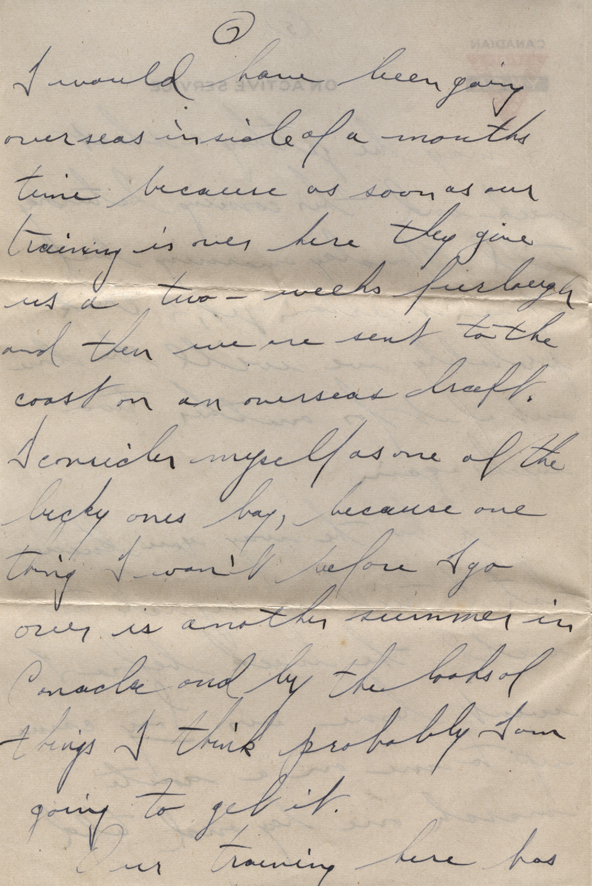 I would have been going
overseas inside of a months
time because as soon as our
training is over here they give
us a two-weeks furlough
and then we are sent to the
coast on an overseas draft.
I consider myself as one of the
lucky ones hay, because one
thing I wan't before I go
over is another summer in
Canada and by the looks of
things I think probably I am
going to get it.
Our training here has